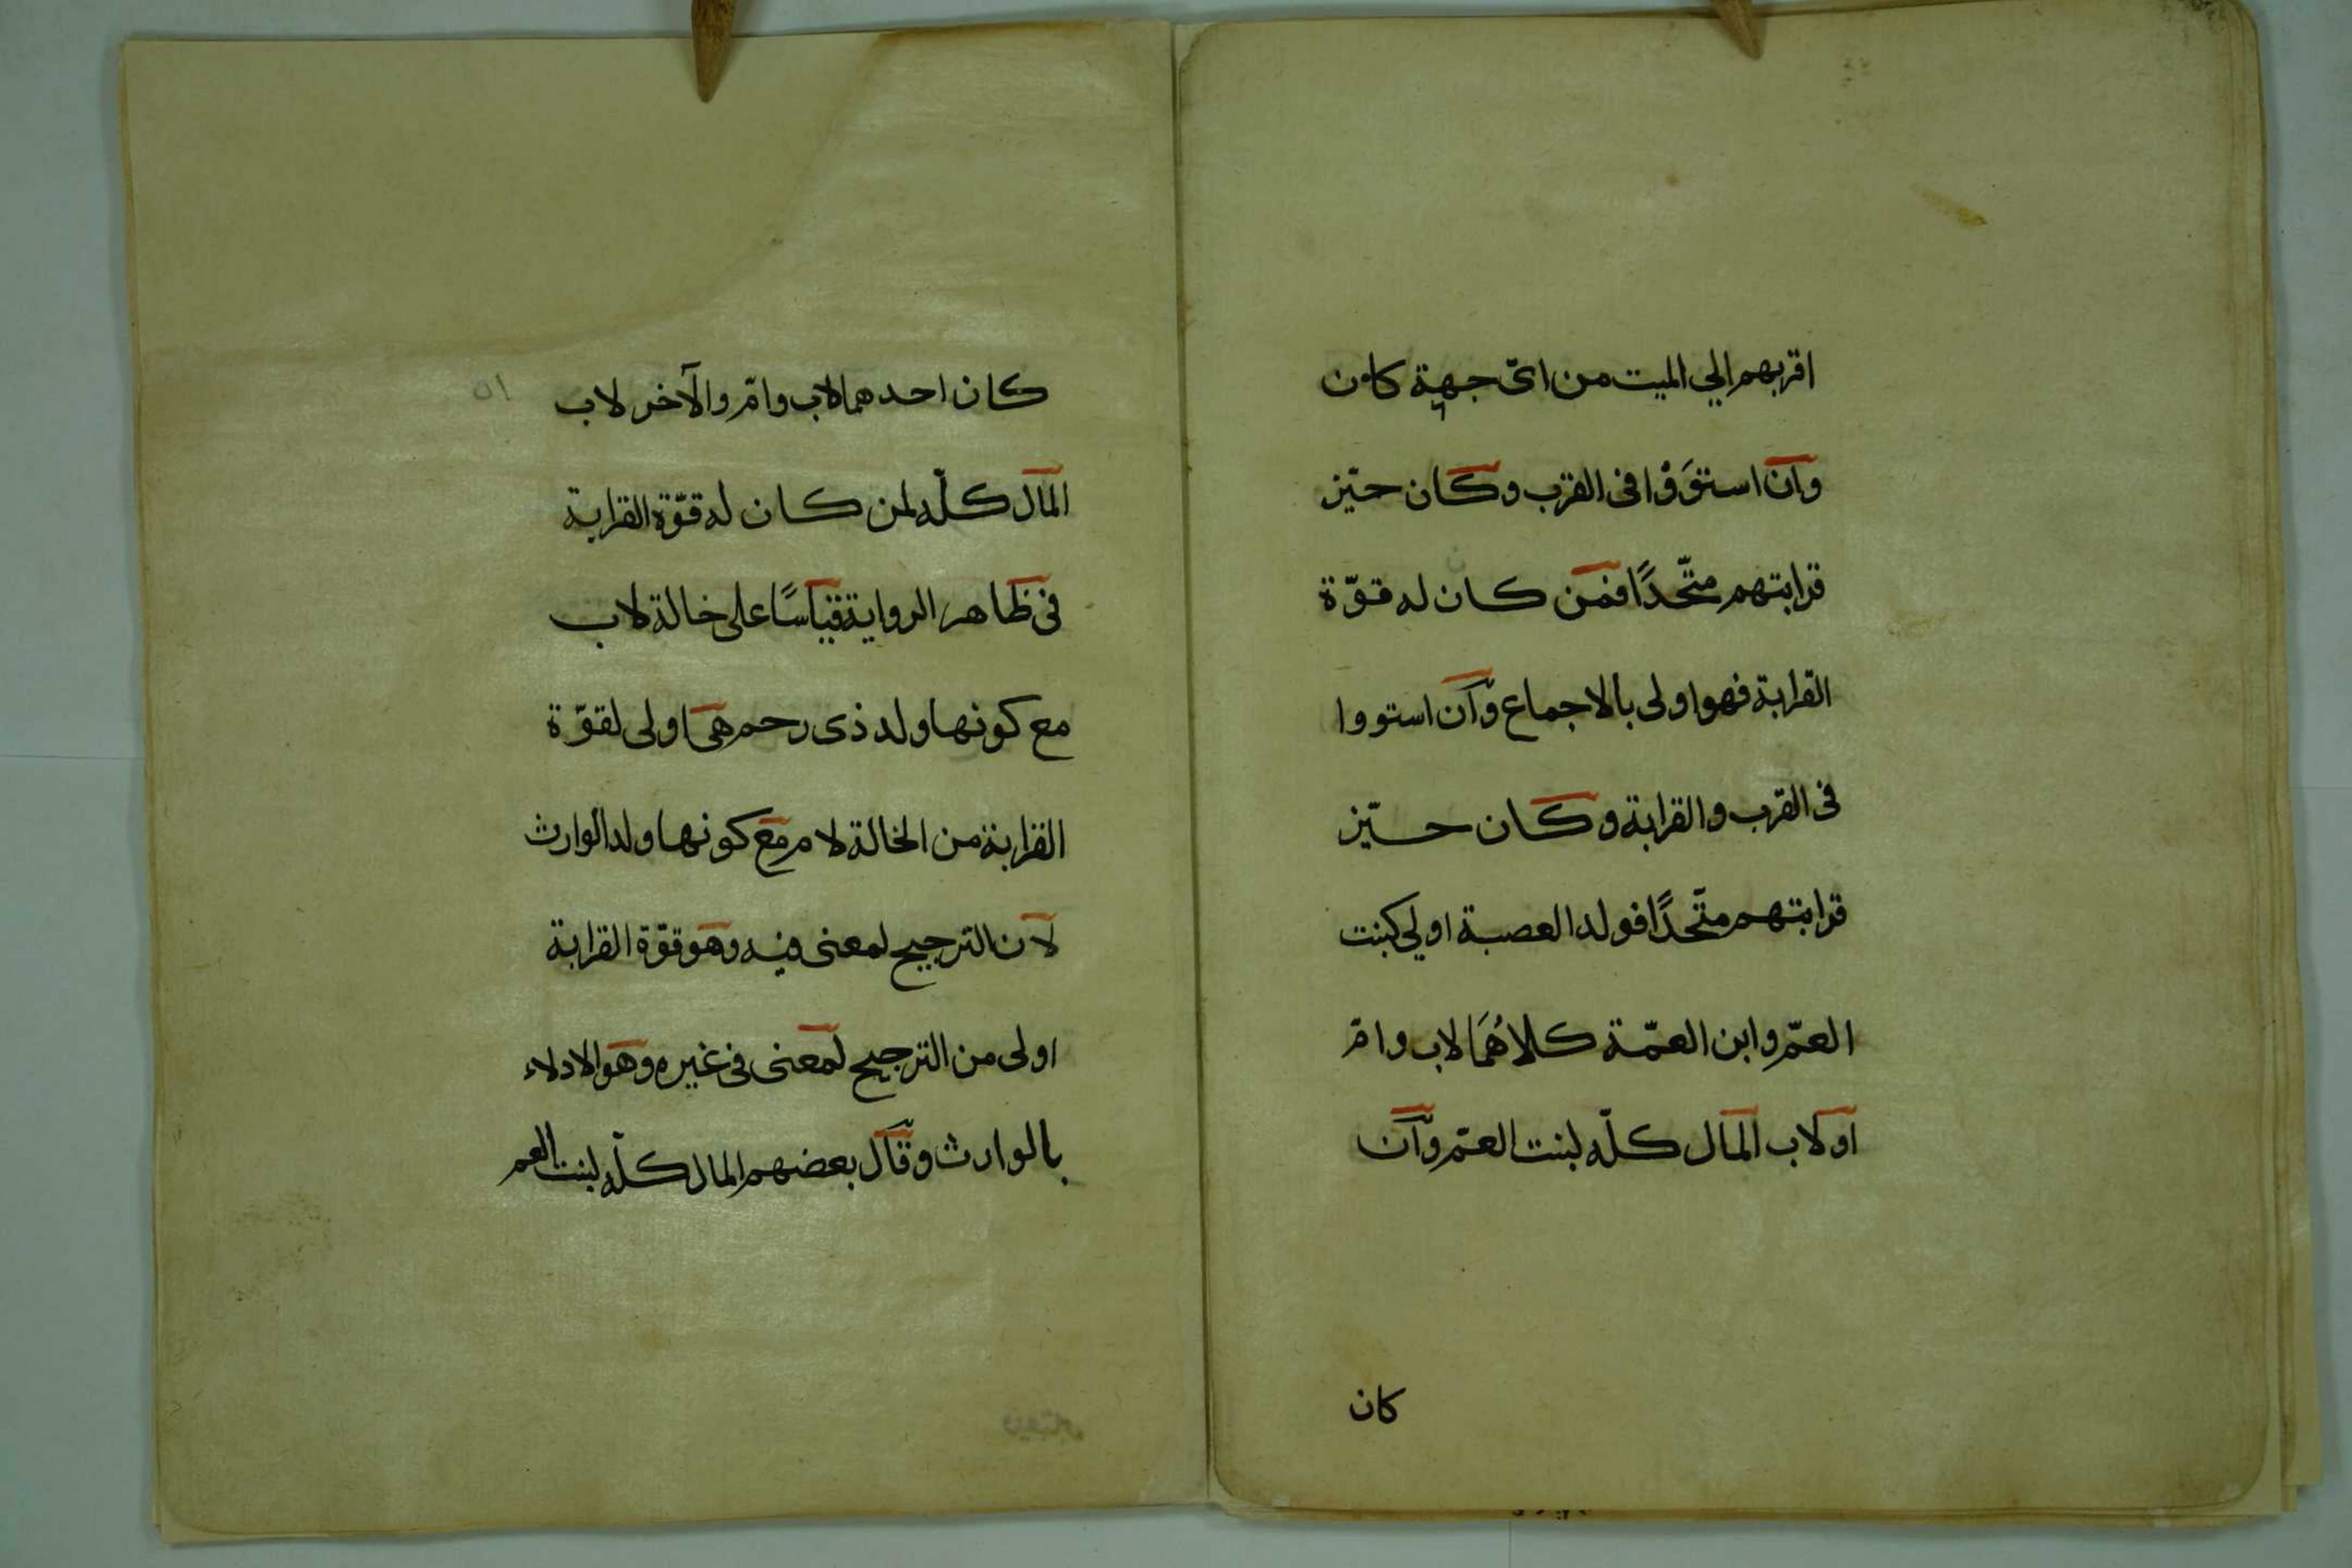 اقربهم الي الميت من اىّ جهة كان
وان استوَوْا فى القرب وكان حيّز
قرابتهم متّحدًا فمن كان له قوّة
القرابة فهو اولى بالاجماع وان استووا
فى القرب والقرابة وكان حيّز
قرابتهم متّحدًا فولد العصبة اولي كبنت
العمّ وابن العمّة كلاهُمَا لاب وامّ
او لاب المال كلّه لبنت العمّ وان
كان
كان احدهما لاب وامّ والآخر لاب
المال كلّه لمن كان له قوّة القرابة
فى ظاهر الرواية قياسًا على خالة لاب
مع كونها ولد ذى رحم هى اولى لقوّة
القرابة من الخالة لام مع كونها ولد الوارث
لان الترجيح لمعنى فيه وهو قوّة القرابة
اولى من الترجيح لمعنى فى غيره وهو الادلاء
بالوارث وقال بعضهم المال كلّه لبنت العم